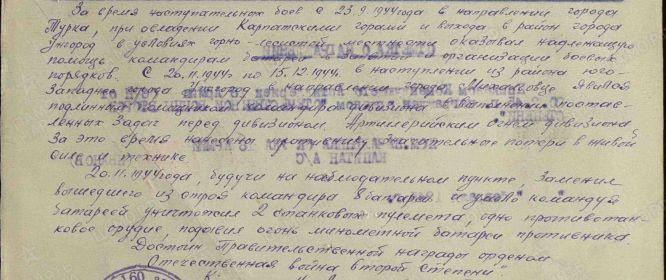 За время наступательных боев с 23.9.1944 года в направлении города
Турка, при овладении Карпатскими горами и выхода в район города
Ужгород в условиях горно-лесистой местности оказывал надлежащую
помощь командирам батарей в организации боевых
порядков. С 20.11.1944г. по 15.12.1944г. в наступлении из района юго-
западнее города Ужгород в направлении города Михаловце явился
подлинным помощником командира дивизиона в выполнении постав-
ленных задач перед дивизионом. Артиллерийским огнем дивизиона
за это время нанесены противнику значительные потери в живой
силе и технике.
20.11.1944 года, будучи на наблюдательном пункте, заменил
вышедшего из строя командира 8 батареи и умело командуя
батареей уничтожил 2 станковых пулемета, одно противотан-
ковое орудие, подавил огонь минометной батареи противника.
Достоин Правительственной награды орденом
"Отечественная война второй степени"
КАПИТАН А/С
160